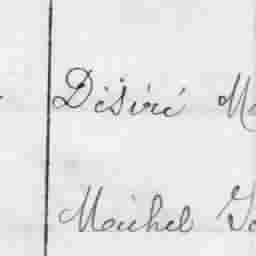 Désiré
Michel